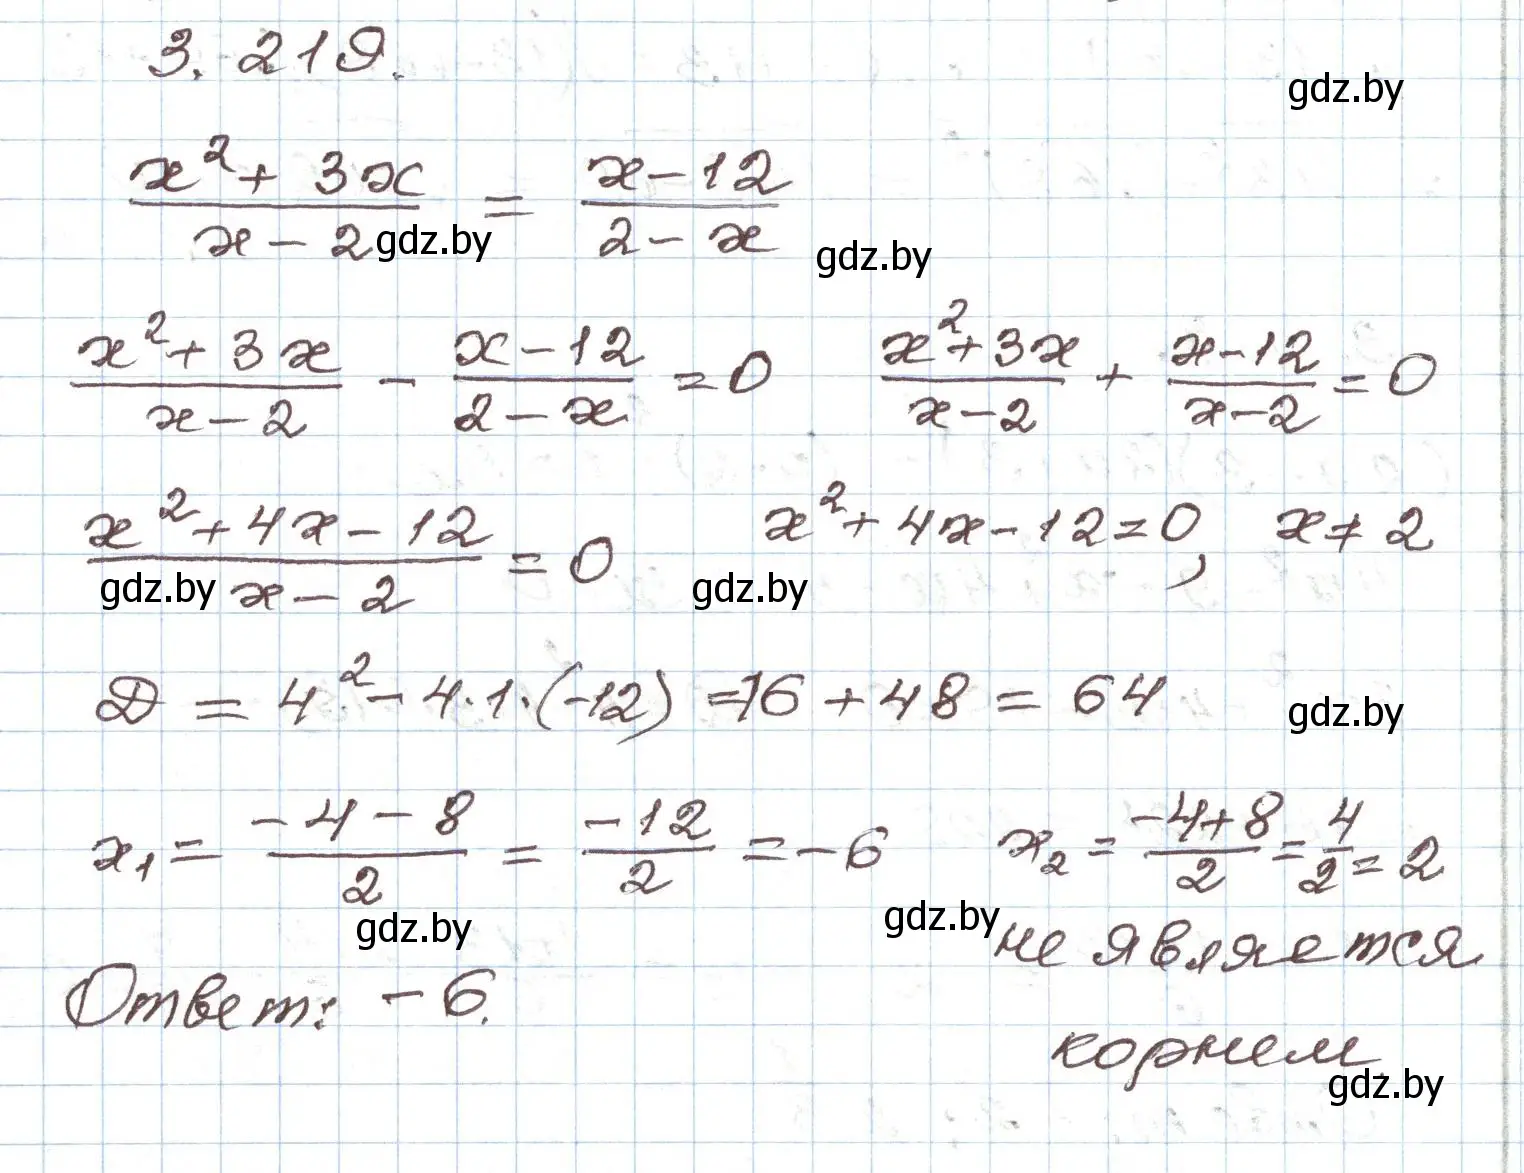 3.219.
gdz.by
x²+3x / x-2 = x-12 / 2-x
gdz.by gdz.by
x²+3x / x-2 - x-12 / 2-x = 0   x²+3x / x-2 + x-12 / x-2 = 0
x²+4x-12 / x-2 = 0   x²+4x-12=0, x≠2
gdz.by gdz.by
D = 4²-4·1·(-12) = 16+48 = 64
gdz.by
x₁ = -4-8 / 2 = -12 / 2 = -6   x₂ = -4+8 / 2 = 4 / 2 = 2
gdz.by gdz.by
не является
Ответ: -6.
корнем
gdz.by